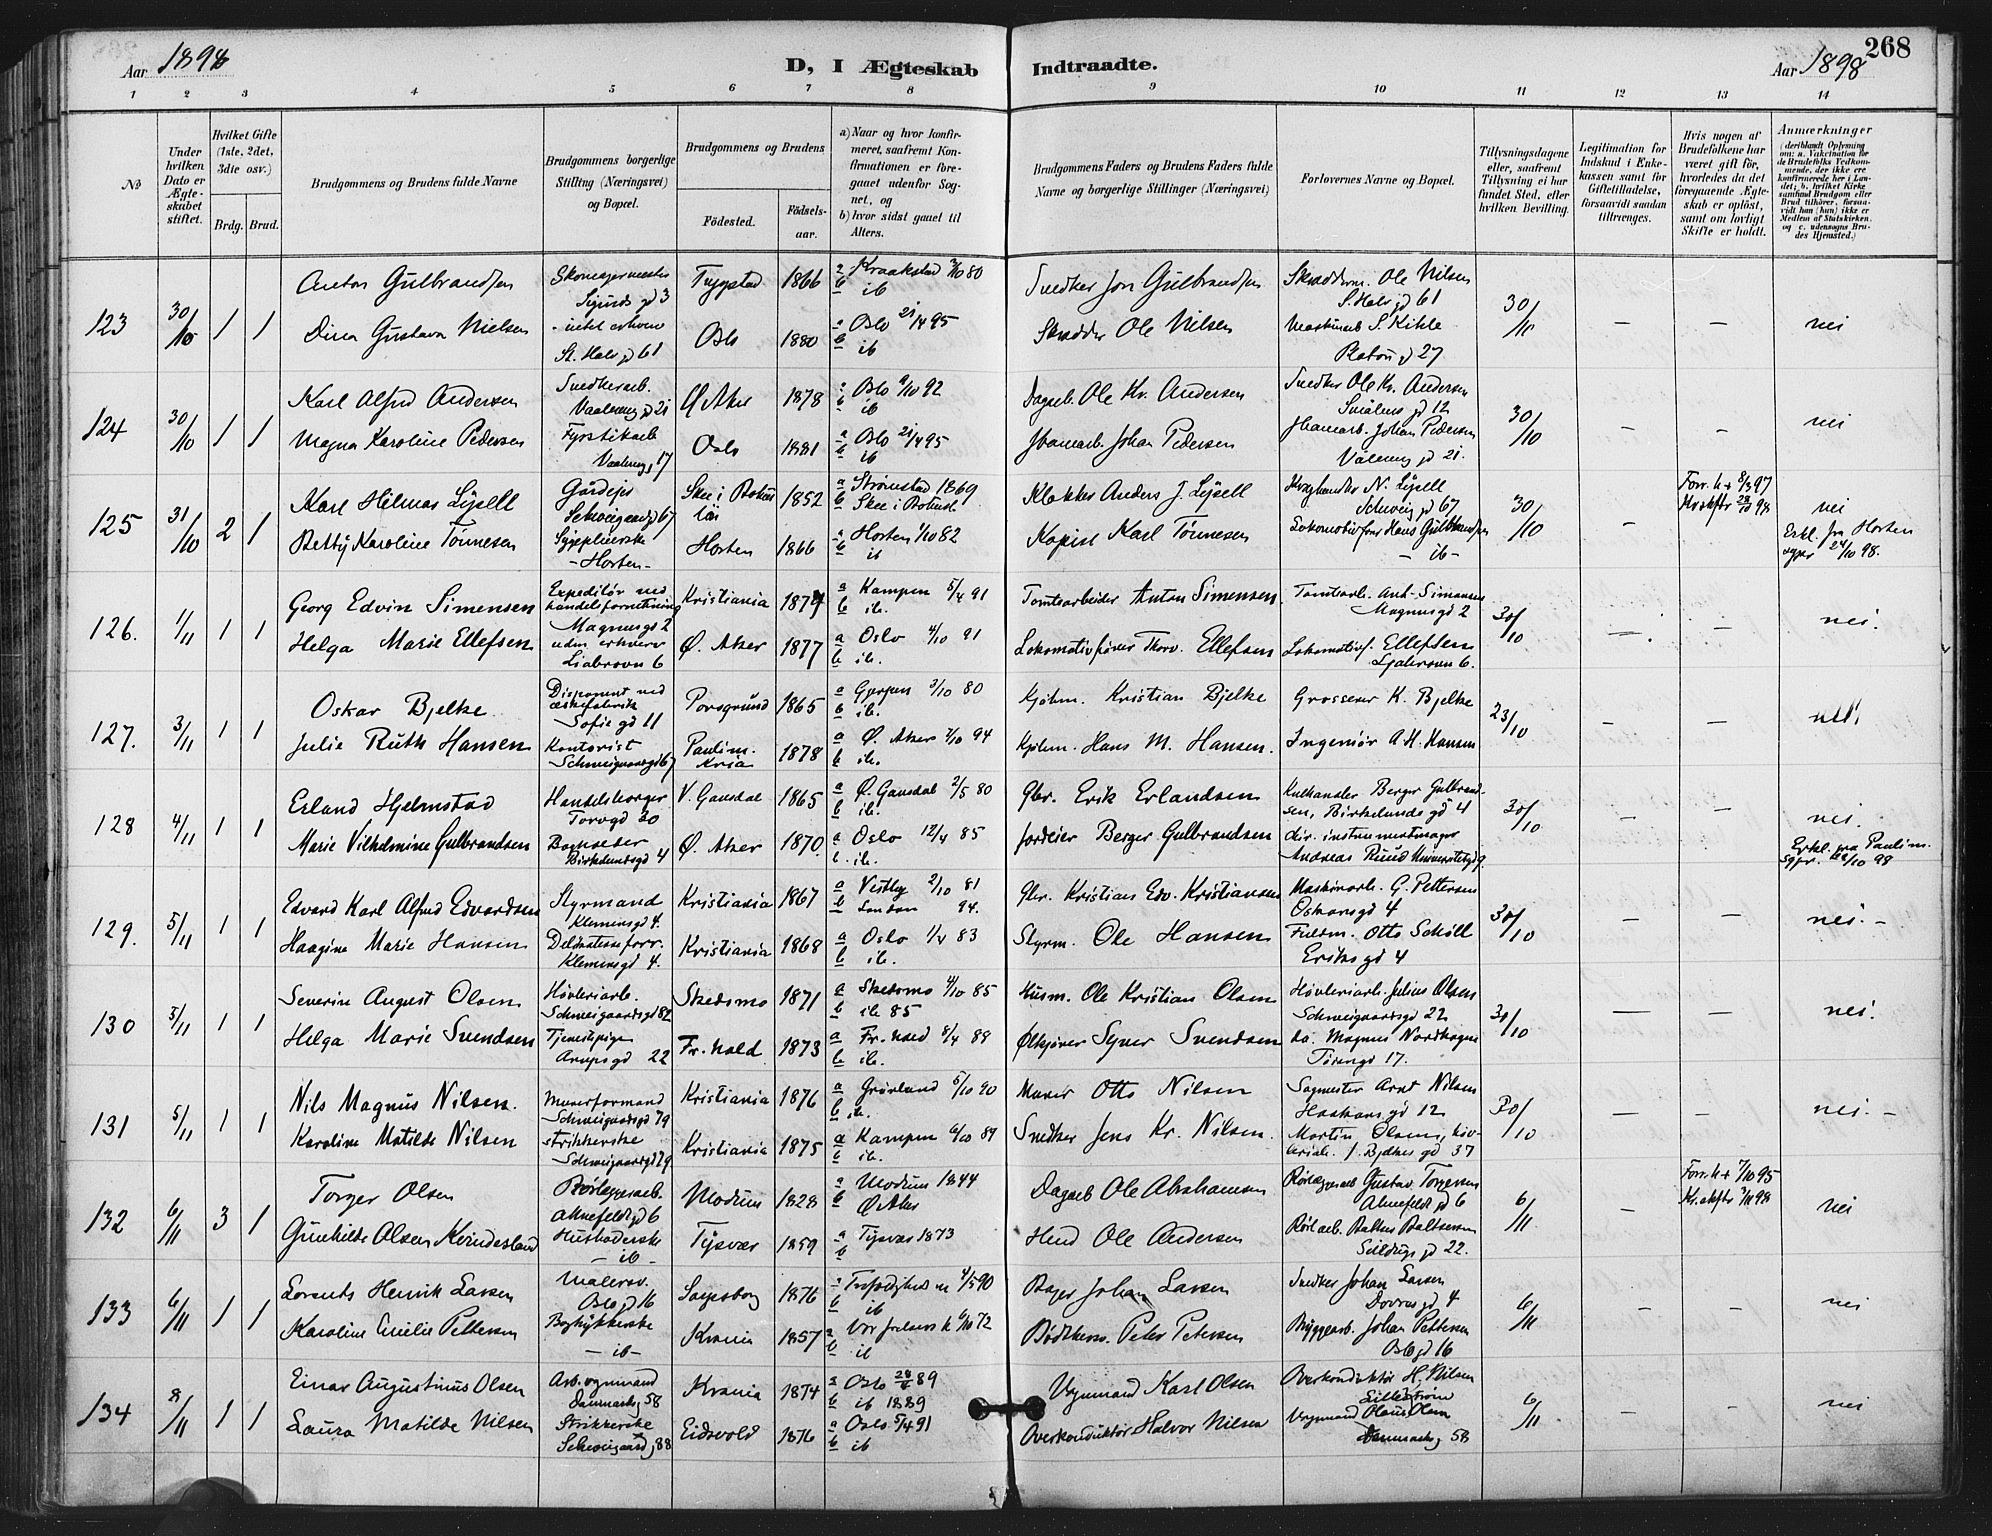 268
Aar 1898
D, I Ægteskab Indtraadte.
Aar 1898
1 2 3 4 5 6 7 8 9 10 11 12 13 14
No
Under hvilken Dato er Ægteskabet stiftet.
Hvilket Gifte (1ste, 2det, 3die osv.)
Brdg. Brud.
Brudgommens og Brudens fulde Navne
Brudgommens borgerlige Stilling (Næringsvei) og Bopæl.
Brudgommens og Brudens
Fødested.
Fødselsaar.
a) Naar og hvor konfirmeret, saafremt Konfirmationen er foregaaet udenfor Sognet, og
b) hvor sidst gaaet til Alters.
Brudgommens Faders og Brudens Faders fulde Navne og borgerlige Stillinger (Næringsvei)
Forlovernes Navne og Bopæl.
Tillysningsdagene eller, saafremt Tillysning ei har fundet Sted, efter hvilken Bevilling.
Legitimation for Indskud i Enkekassen samt for Giftetilladelse, forsaavidt saadan tiltrænges.
Hvis nogen af Brudefolkene har været gift før, hvorledes da det foregaaende Ægteskab er opløst, samt om lovligt Skifte er holdt.
Anmærkninger
(deriblandt Oplysning om: a. Vakcination for de Brudefolks Vedkommende, der ikke ere konfirmerede her i Landet; b. hvilket Kirkesamfund Brudgom eller Brud tilhører, forsaavidt han (hun) ikke er Medlem af Statskirken, og c. udensogns Brudes Hjemsted.)
123 30/10 1 1
Anton Gulbrandsen
Sigurds gd 3
1866
a Kraakstad 80
b ib
Snedker Jon Gulbrandsen
Skræderm. Ole Nilsen
S. Halv gd 61
30/10 – – nei
Dina Gustava Nielsen
St. Halv gd 61
Oslo 1880
a Oslo 21/4 95
b ib
Skrædder Ole Nilsen
S. Kihle
27
124 30/10 1 1
Karl Alfred Andersen
Snedkerarb.
Vaalereng gd 21
Ø Aker 1878
a Oslo 9/10 92
b ib
Dagarb. Ole Kr. Andersen
Snedker Ole Kr. Andersen
Smålens gd 12
30/10 – – nei
Magna Karoline Pedersen
Fyrstikarb
Vaalereng 17
Oslo 1881
a Oslo 21/4 95
b ib
Johan Pedersen
Johan Pedersen
Vålereng gd 21.
125 31/10 2 1
Karl Hilmar Lysell
Gårdejer
Schweigaardsgd 67
Skee i Bohus län
1852
a Strømstad 1869
b Skee i Bohusl
Klokker Anders J. Lysell
N. Lysell
Schweig gd 67
30/10 –
Forr. h + 8/3 97
98
nei
Betty Karoline Tönnesen
Sygepleierske
– Horten –
Horten 1866
a Horten 1/10 82
b ib
Karl Tönnesen
Hans Gulbrandsen
– ib –
Erkl. fra Horten
24/10 98.
126. 1/11 1 1
Georg Edvin Simensen
Expeditør ved handelsforretning
Magnusgd 2
Kristiania 1874
a Kampen 5/4 91
b ib.
Tomtearbeider Anton Simensen.
Tomtearb. Ant. Simensen
Magnusgd 2
30/10 – – nei.
Helga Marie Ellefsen
uden erhverv
Liabroen 6
Ø. Aker 1877
a Oslo 4/10 91
b ib.
Lokomotivfører Thorv. Ellefsen
Lokomotivf. Ellefsen
127. 3/11 1 1
Oskar Bjelke
Disponent ved
Sofie gd 11
Porsgrund 1865
a Gjerpen 3/10 80
b ib.
Kjøbm. Kristian Bjelke
Grosserer K. Bjelke
23/10 – – nei.
Julie Ruth Hansen
Kontorist
Schweigaardsgd 67
Paulim. Kria
1878
a Ø. Aker 7/10 94
b ib.
Kjøbm. Hans M. Hansen.
Ingeniør A. H. Hansen
128 4/11 1 1
Erland Hjelmstad
Handelsborger
Torvgd 20
V. Gausdal 1865
a Ø. Gausdal 2/5 80
b ib.
Gbr. Erik Erlandsen
Kulhandler Berger Gulbrandsen, Birkelunds gd 4
30/10 – – nei.
Marie Vilhelmine Gulbrandsen
Birkelundsgd 4
Ø. Aker 1870.
a Oslo 12/4 85
b. ib.
Jordeier Berger Gulbrandsen
Andreas Ruud
Erkl. fra Paulim.
129. 5/11 1 1
Edvard Karl Alfred Edvardsen
Styrmand
Klemensgd 4.
Kristiania 1867
a Vestby 2/10 81
b London 94.
Gbr. Kristian Edv. Kristiansen
Maskinarb. G. Pettersen
Oskarsgd 4
30/10 – – nei. –
Haagine Marie Hansen
Delikatesseforr.
Klemensgd 4.
Kristiania 1868
a Oslo 1/4 83
b ib.
Styrm. Ole Hansen
Fuldm. Otto Schøll
Eriks gd 4
130 5/11 1 1
Severin August Olsen
Høvleriarb.
Schweigaardsgd 82
Skedsmo 1871
a Skedsmo 11/10 85
b ib 85
Husm. Ole Kristian Olsen
Høvleriarb. Julius Olsen
Schweigaardsgd 22
30/10 – – nei.
Helga Marie Svendsen
Tjenestepige
Arupsgd 22
Fr. hald. 1873
a Fr. hald 8/4 88
b ib.
Ølkjører Syver Svendsen
do. Magnus Nordhagen
17.
131 5/11 1 1
Nils Magnus Nilsen.
Murerformand
Schweigaardsgd 79
Kristiania 1876
a Grønland 5/10 90
b ib.
Murer Otto Nilsen
Sagmester Arnt Nilsen
Haakons gd 12
30/10 – – nei. –
Karoline Matilde Nilsen
Strikkerske
Schweigaardsgd 79
Kristiania 1875
a Kampen 6/10 89
b ib.
Snedker Jens Kr. Nilsen.
Martin Olsen, høvleriarb. f. Bjelkes gd 37
132 6/11 3 1
Torger Olsen
Rørlæggerarb.
Ahnefeldt gd 6
Modum 1828
a Modum 1844
b Ø Aker
Dagarb Ole Abrahamsen
Rørlæggerarb Gustav Torgersen
Ahnefeldt gd 6
6/11 –
Forr. h + 7/10 95
98
nei
Gunhilde Olsen Kvindesland
Husholderske
– ib –
Tysvær 1859
a Tysvær 1873
b
Ole Andersen
Rørl arb. Baltser Baltsersen
gd 22.
133 6/11 1 1
Lorents Henrik Larsen
Malersv.
Oslo gd 16
Sarpsborg 1876
a 4/5 90
b ib
Bager Johan Larsen
Snedker Johan Larsen
Dovregd 4
6/11 – – nei
Karoline Emilie Pettersen
– ib –
Krania 1857
a Vor frelsers k 6/10 72
b ib
Peter Petersen
Bryggearb. Johan Pettersen
Oslogd 16
134 8/11 1 1
Einar Augustinus Olsen
Arb. vognmand
Danmarksg 58
Krania 1874
a Oslo 89
b ib 1889
Vognmand Karl Olsen
Overkonduktør H. Nilsen
Lillestrøm
6/11 – – nei
Laura Matilde Nilsen
Strikkerske
Schweigaardsg 88
Eidsvold 1876
a Oslo 5/4 91
b ib
Overkonduktør Halvor Nilsen
Vognmand Olaus Olsen
Danmarksg 58